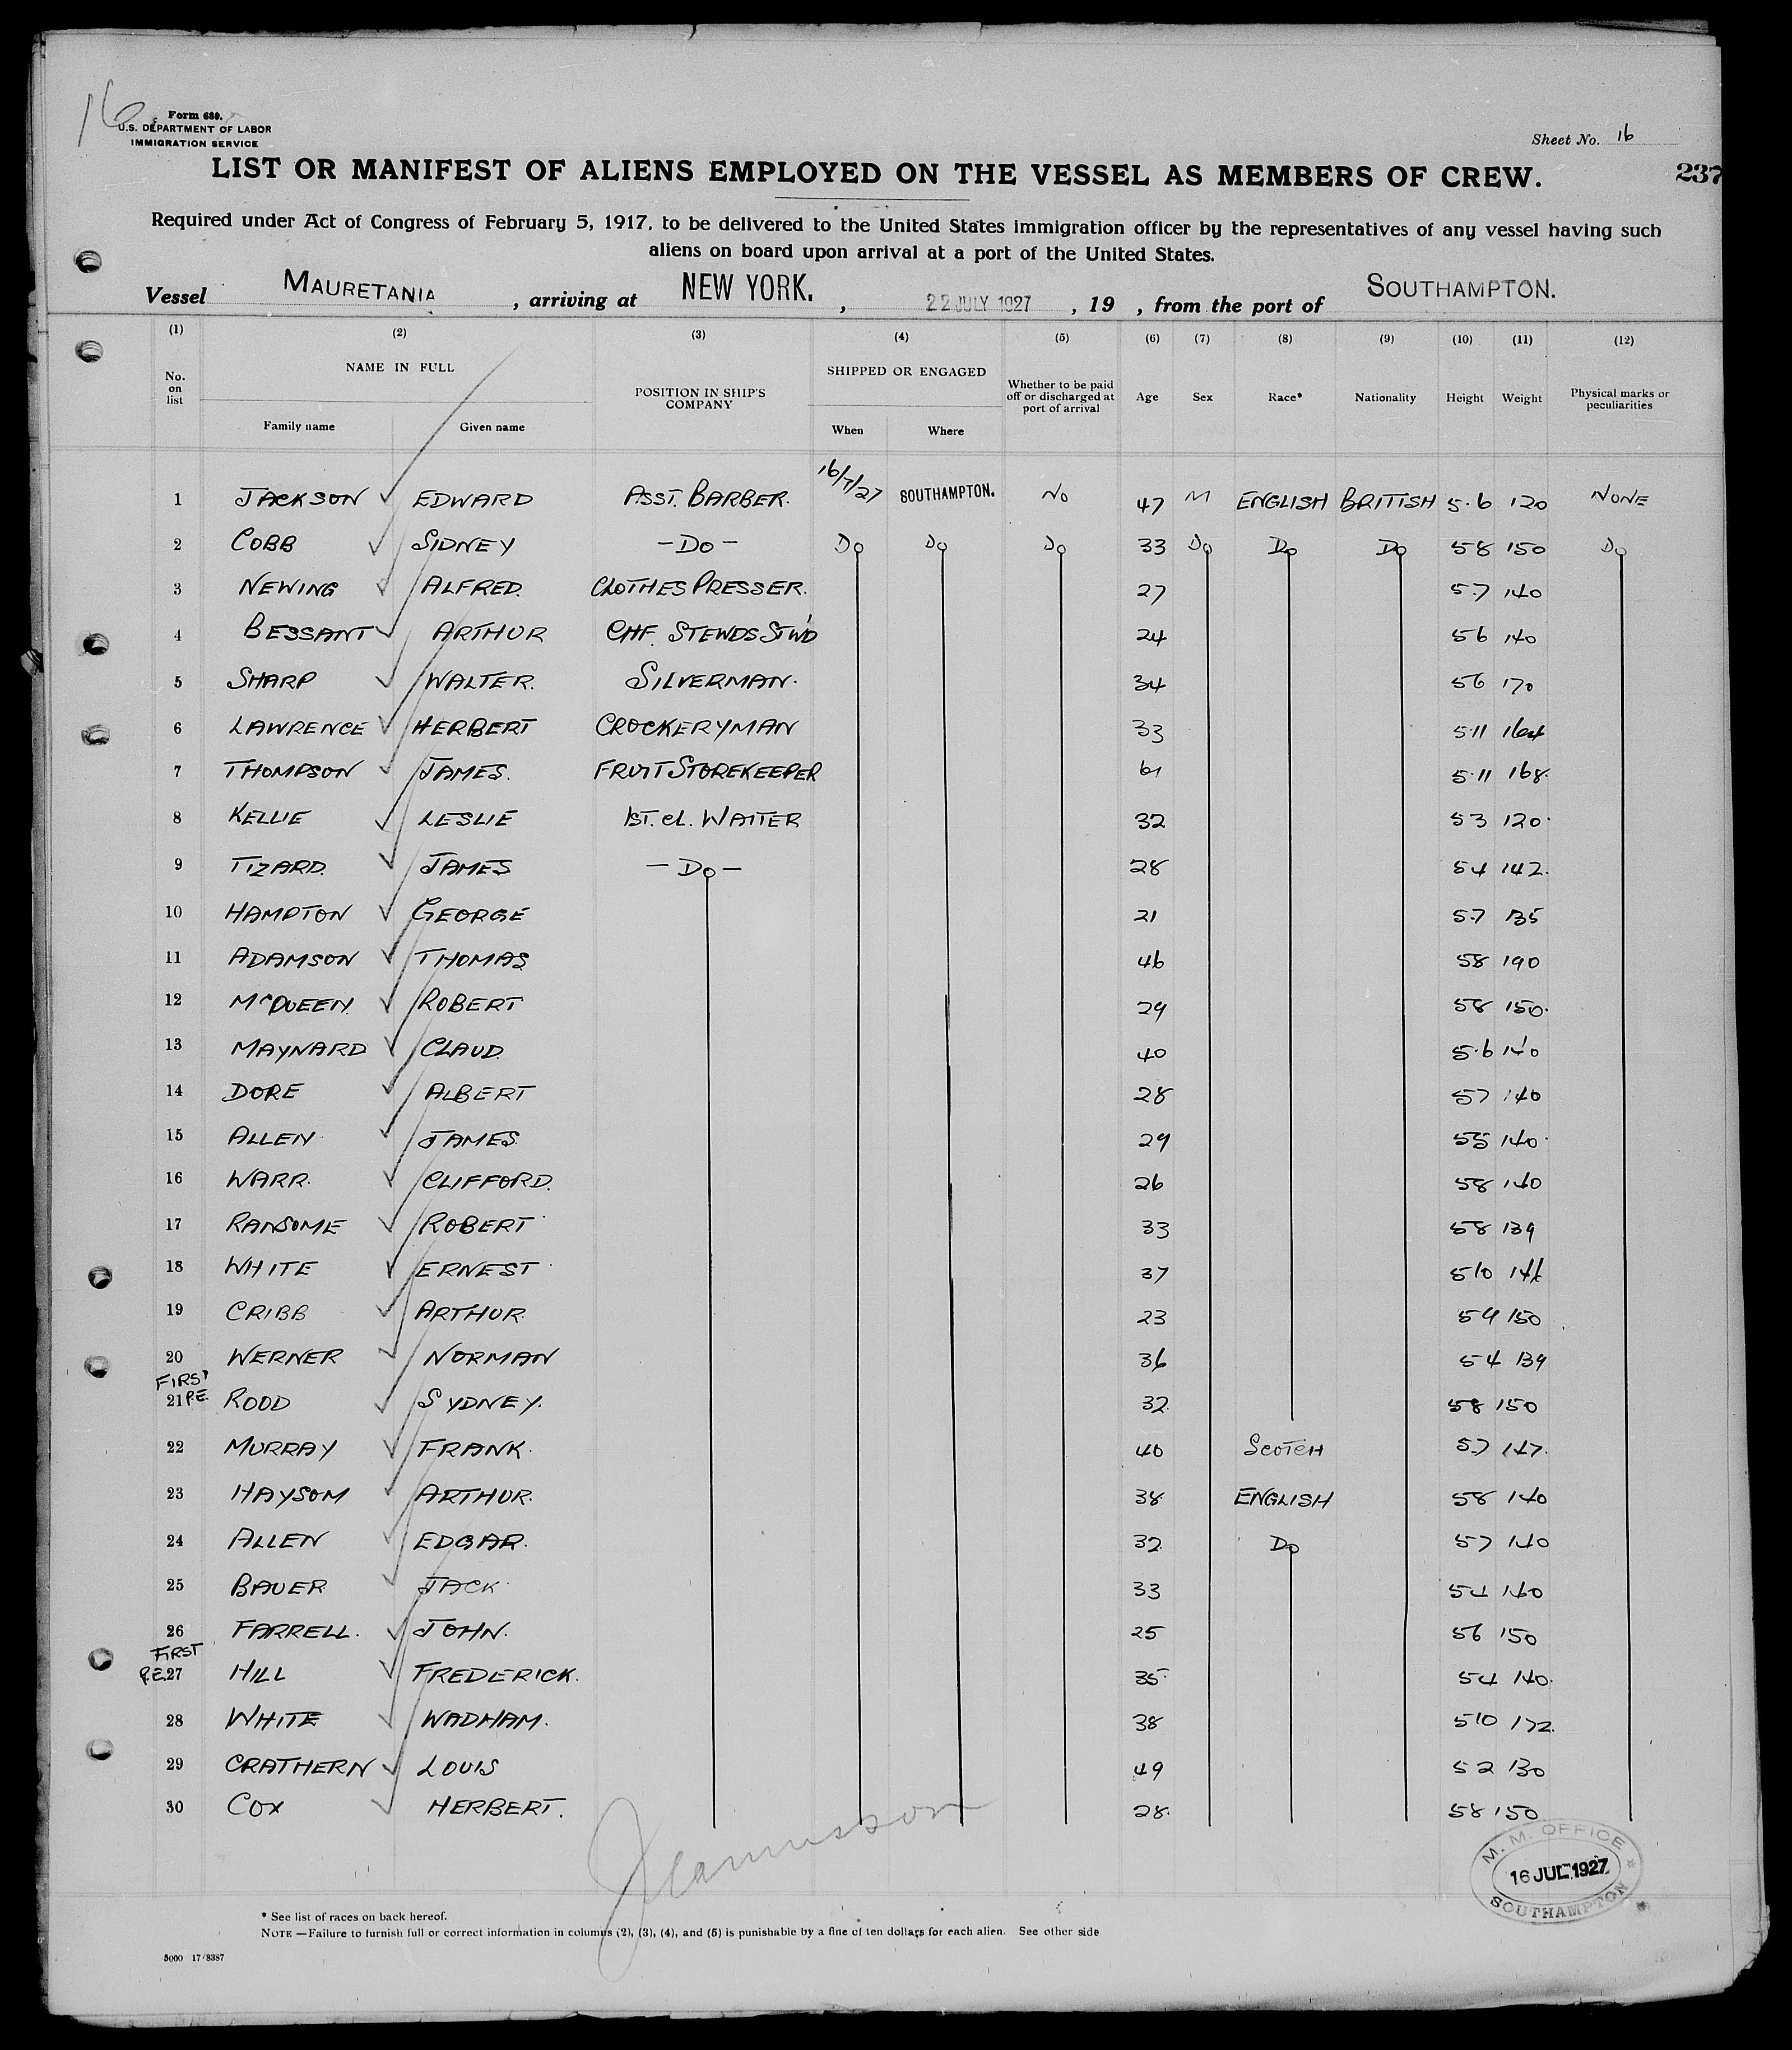 16
Form 680.
U.S. DEPARTMENT OF LABOR
IMMIGRATION SERVICE
Sheet No. 16
LIST OR MANIFEST OF ALIENS EMPLOYED ON THE VESSEL AS MEMBERS OF CREW.
237
Required under Act of Congress of February 5, 1917, to be delivered to the United States immigration officer by the representatives of any vessel having such
aliens on board upon arrival at a port of the United States.
Vessel MAURETANIA, arriving at NEW YORK., 22 JULY 1927, 19 , from the port of SOUTHAMPTON.
(1) (2) (3) (4) (5) (6) (7) (8) (9) (10) (11) (12)
No. on list NAME IN FULL POSITION IN SHIP'S COMPANY SHIPPED OR ENGAGED Whether to be paid off or discharged at port of arrival Age Sex Race* Nationality Height Weight Physical marks or peculiarities
Family name Given name When Where
1 JACKSON EDWARD ASST. BARBER. 16/7/27 SOUTHAMPTON. NO 47 M ENGLISH BRITISH 5.6 120 NONE
2 COBB SIDNEY -DO- DO DO DO 33 DO DO DO 58 150 DO
3 NEWING ALFRED. CLOTHES PRESSER. 27 5.7 140
4 BESSANT ARTHUR CHF. STEWDS STWD 24 56 140
5 SHARP WALTER. SILVERMAN. 34 56 170
6 LAWRENCE HERBERT CROCKERYMAN 33 511 164
7 THOMPSON JAMES. FRUIT STOREKEEPER 61 5.11 168.
8 KELLIE LESLIE 1ST. CL. WAITER 32 53 120.
9 TIZARD. JAMES -DO- 28 54 142.
10 HAMPTON GEORGE 21 5.7 135
11 ADAMSON THOMAS 46 58 190
12 McQUEEN. ROBERT 29 58 150.
13 MAYNARD CLAUD. 40 5.6 140
14 DORE ALBERT 28 57 140
15 ALLEN JAMES 29 55 140.
16 WARR. CLIFFORD. 26 58 140
17 RANSOME ROBERT 33 58 139
18 WHITE ERNEST 37 510
19 CRIBB ARTHUR. 23 59 150
20 WERNER NORMAN 36 54 139
FIRST
21 P.E. ROOD SYDNEY. 32. 58 150
22 MURRAY FRANK. 40 SCOTCH 5.7 147.
23 HAYSOM ARTHUR. 38 ENGLISH 58 140
24 ALLEN EDGAR. 32 DO 57 140
25 BAUER JACK 33 54 160
26 FARRELL. JOHN. 25 56 150
FIRST
P.E. 27 HILL FREDERICK. 35 54 140.
28 WHITE WADHAM. 38 510 172.
29 CRATHERN LOUIS 49 52 130
30 COX HERBERT. 28. 58 150
M. M. OFFICE
16 JUL 1927
SOUTHAMPTON
* See list of races on back hereof.
NOTE —Failure to furnish full or correct information in columns (2), (3), (4), and (5) is punishable by a fine of ten dollars for each alien. See other side
5000 17/8387